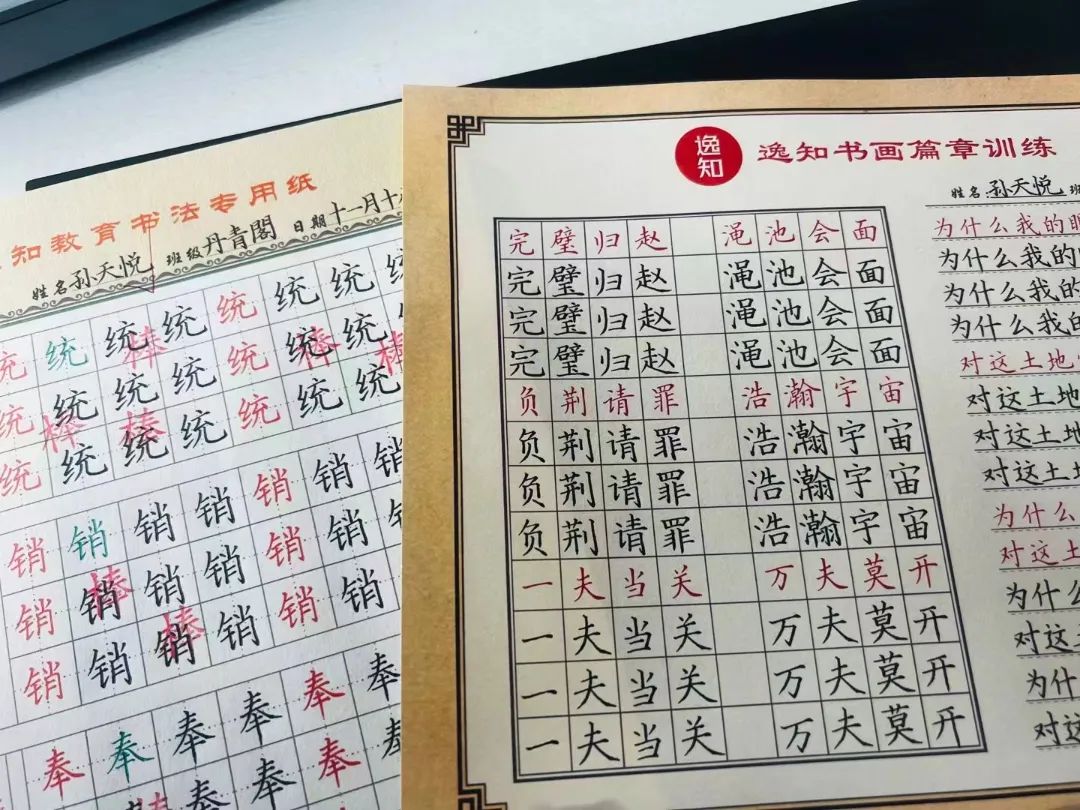 知教育书法专用纸
姓名 孙天悦 班级 丹青閣 日期 十一月十
统 统 统 统 统 统 统
统 统 统 统 统 统
统 统 统 统 统 统 统
销 销 销 销 销 销
销 销 销 销 销 销
销 销 销 销 销 销
奉 奉 奉 奉 奉
奉 奉 奉 奉 奉 奉
逸知
逸知书画篇章训练
姓名 孙天悦
完璧归赵 渑池会面
完璧归赵 渑池会面
完璧归赵 渑池会面
完璧归赵 渑池会面
负荆请罪 浩瀚宇宙
负荆请罪 浩瀚宇宙
负荆请罪 浩瀚宇宙
负荆请罪 浩瀚宇宙
一夫当关 万夫莫开
一夫当关 万夫莫开
一夫当关 万夫莫开
一夫当关 万夫莫开
为什么我的眼
为什么我的
为什么我的
为什么我的
对这土地
对这土地
对这土
对这土地
为什么
对这土
为什么
对这土
为什
对这